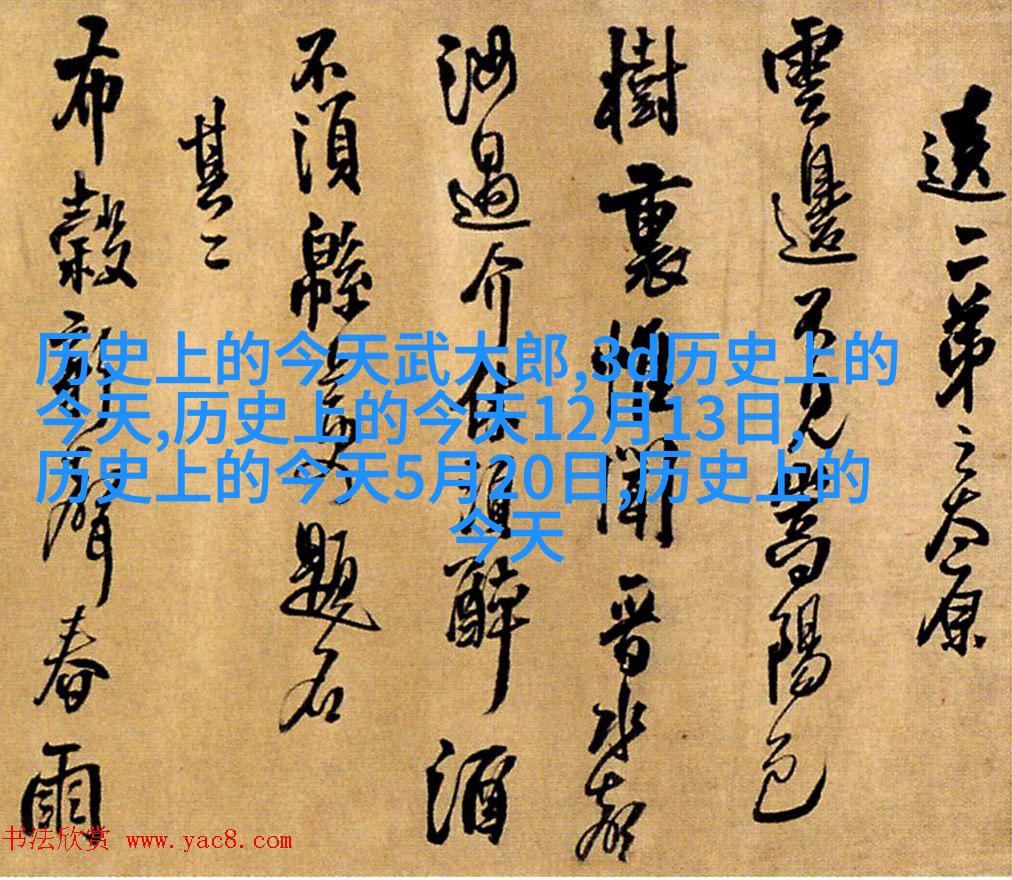 送二弟之太原
雲邊不見嵩陽色
樹裏惟聞晉水
汝過介休須醉酒
不須緜上題名
其二
布穀新聲春雨
历史上的今天武大郎,3d历史上的
今天,历史上的今天12月13日,
历史上的今天5月20日,历史上的
今天
书法欣赏 www.yac8.com